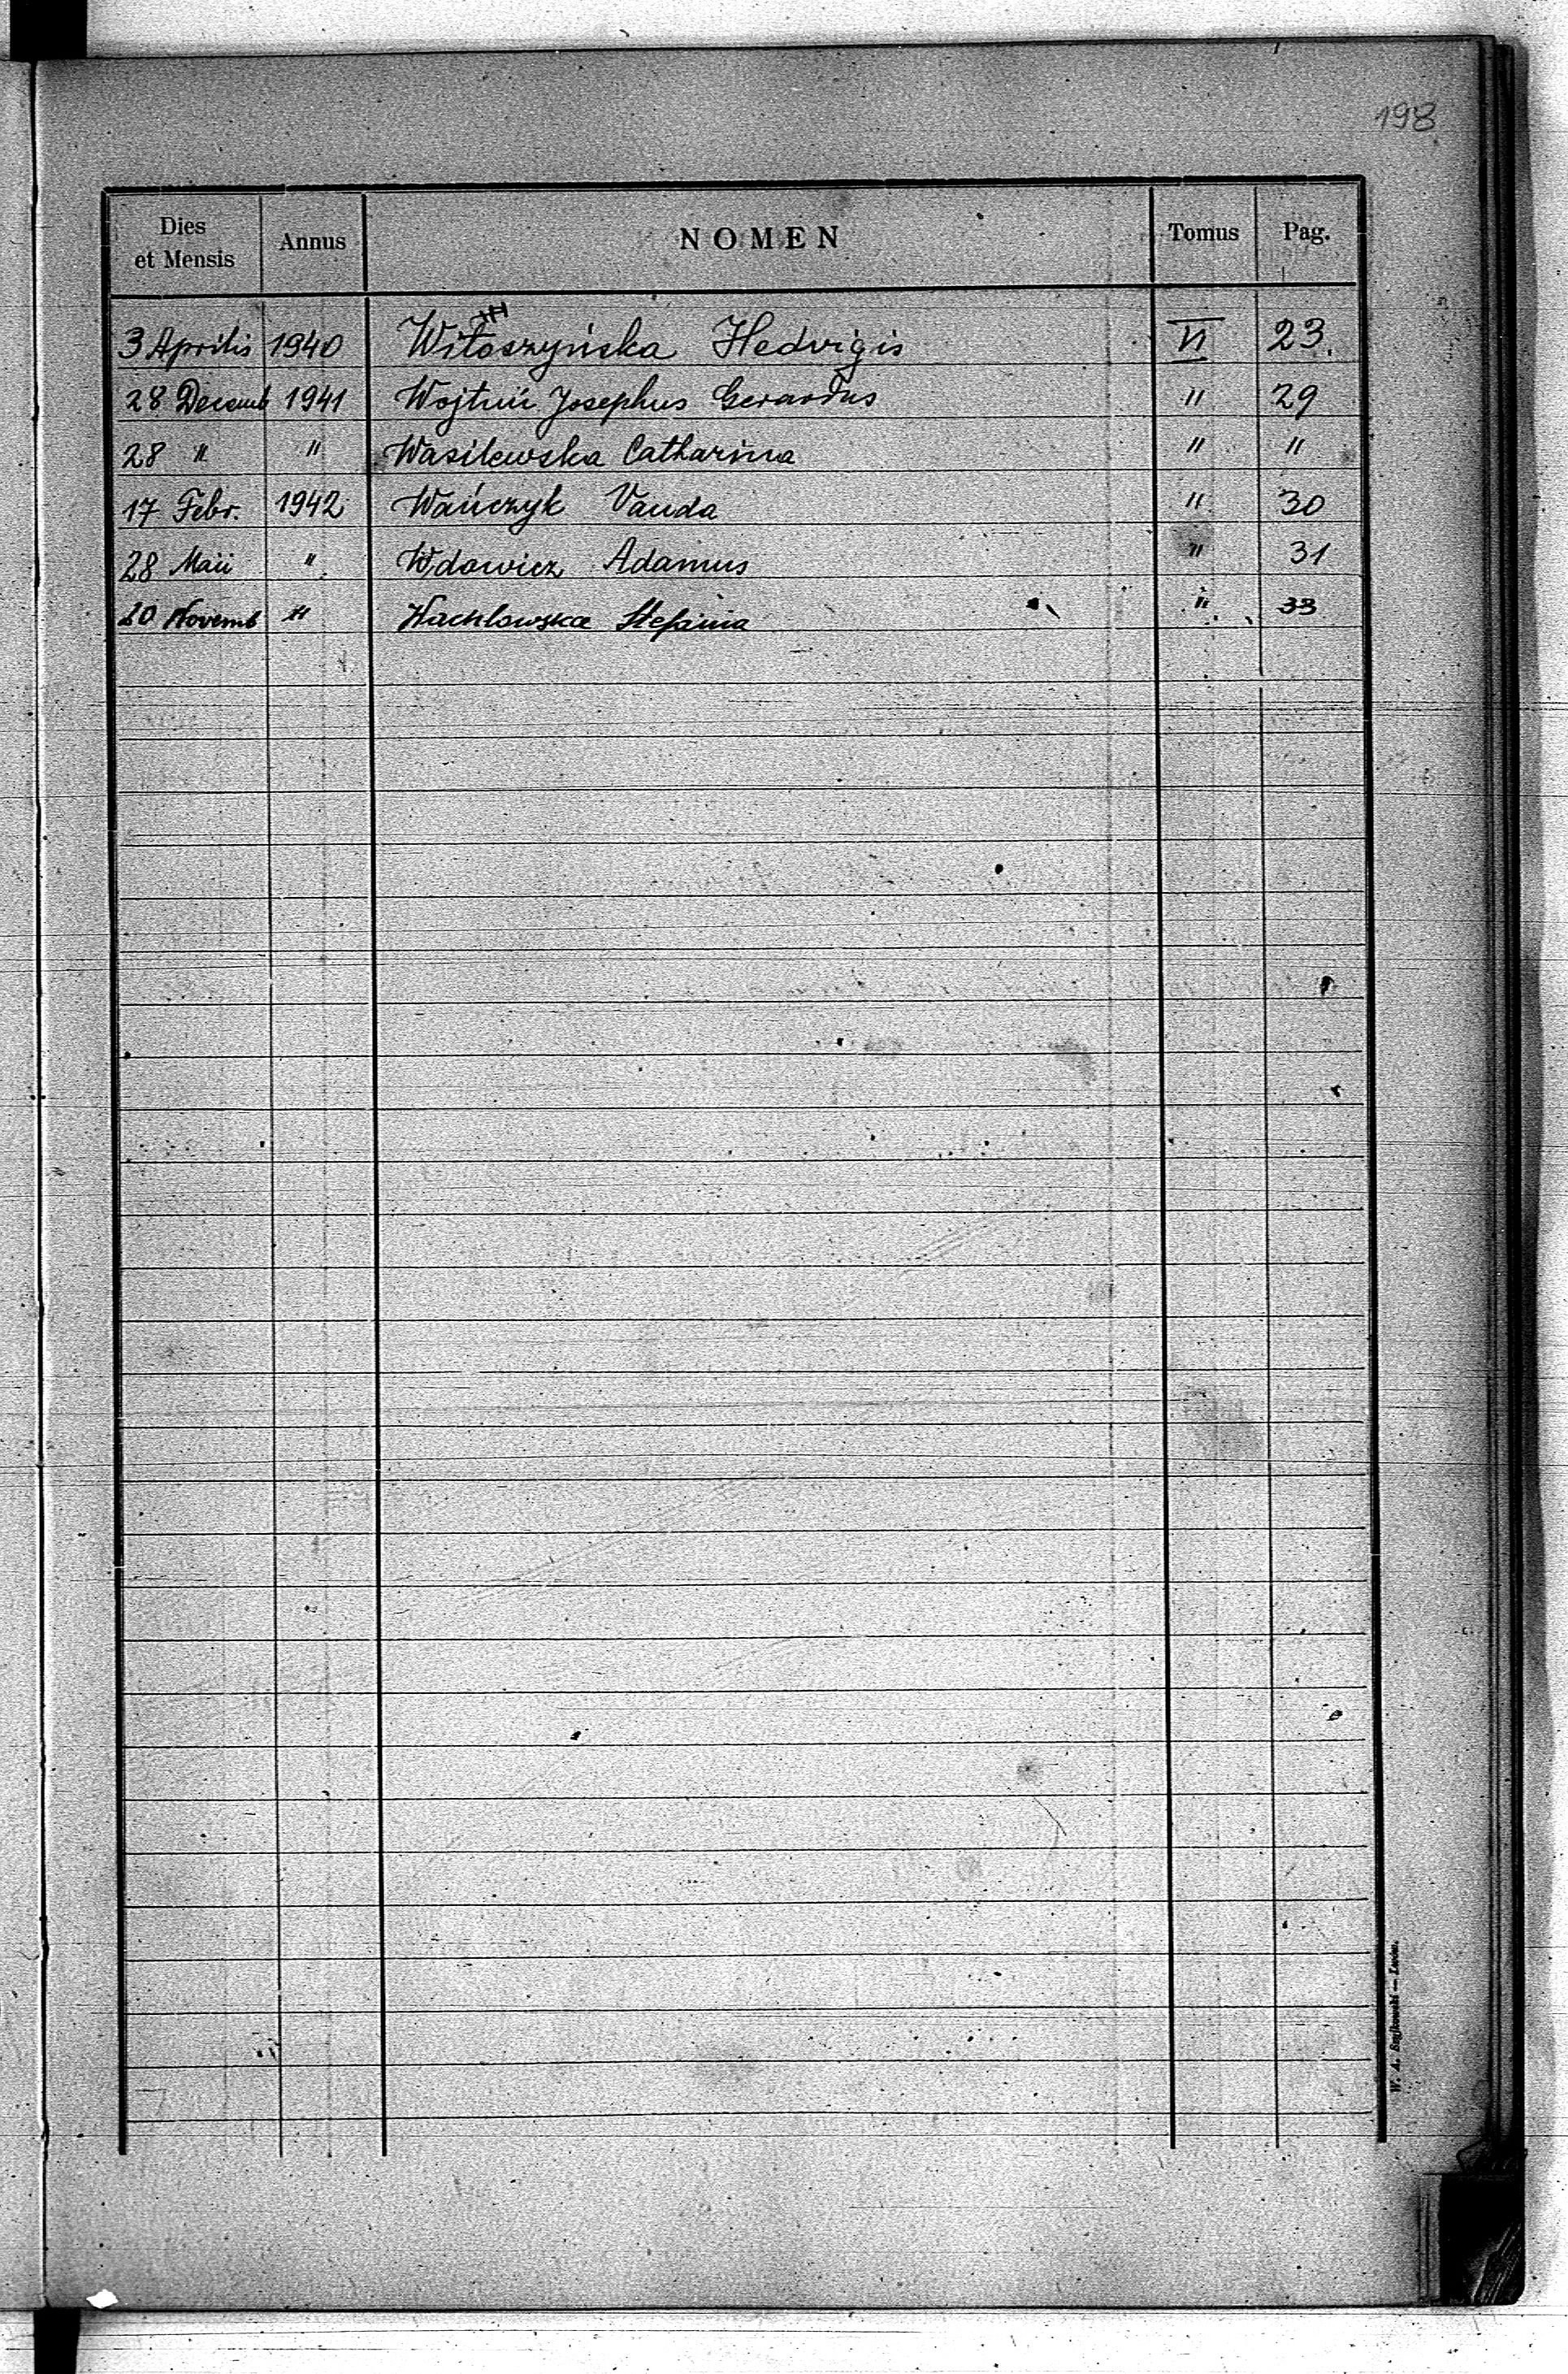 198
Dies et Mensis Annus NOMEN Tomus Pag.
3 Aprilis 1940 Witoszyńska Hedvigis VI 23.
28 Decemb 1941 Josephus Gerardus " 29
28 " " Wasilewska Catharina " "
17 Febr. 1942 Wańczyk Vanda " 30
28 Maii " Wdowicz Adamus " 31
20 Novemb " Wachlowska Stefania " 33
W. A. — Lwów.